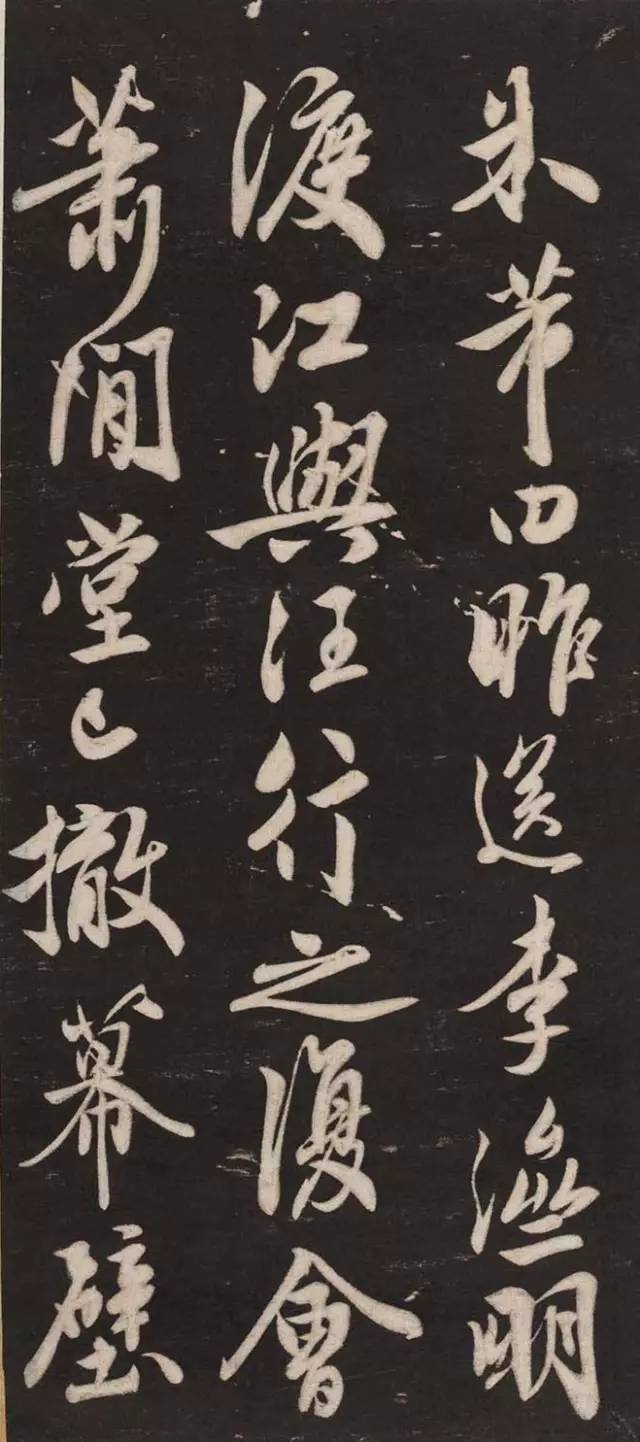 米芾曰昨送李瀛明
渡江與汪行之復會
蕭閒堂已撤幕壁